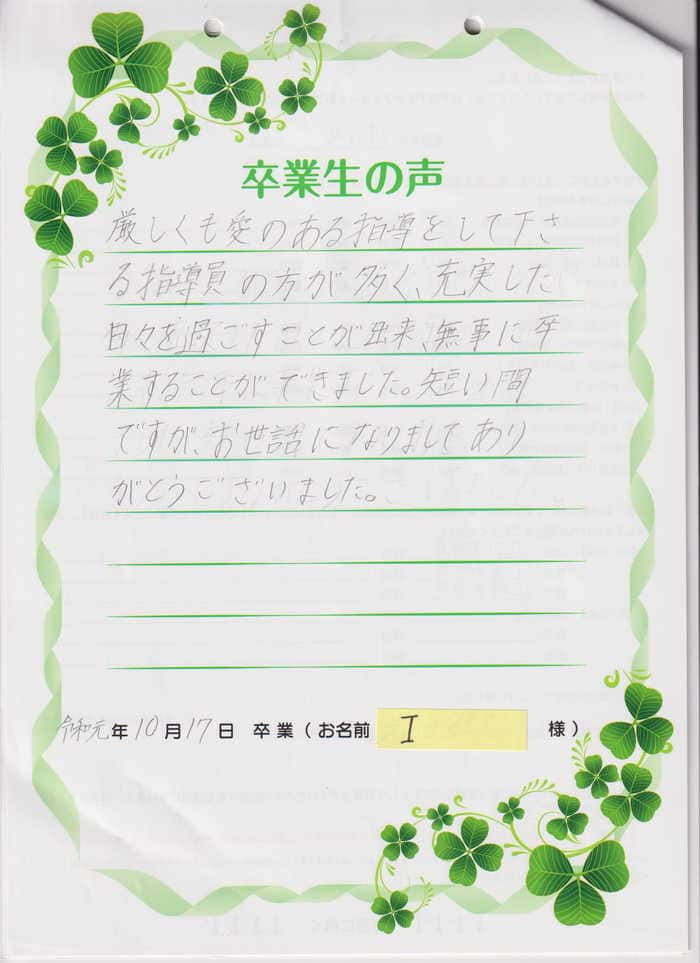 卒業生の声
厳しくも愛のある指導をして下さ
る指導員の方が多く、充実した
日々を過ごすことが出来、無事に卒
業することができました。短い間
ですが、お世話になりましてあり
がとうございました。
令和元年10月17日 卒業(お名前 I 様)